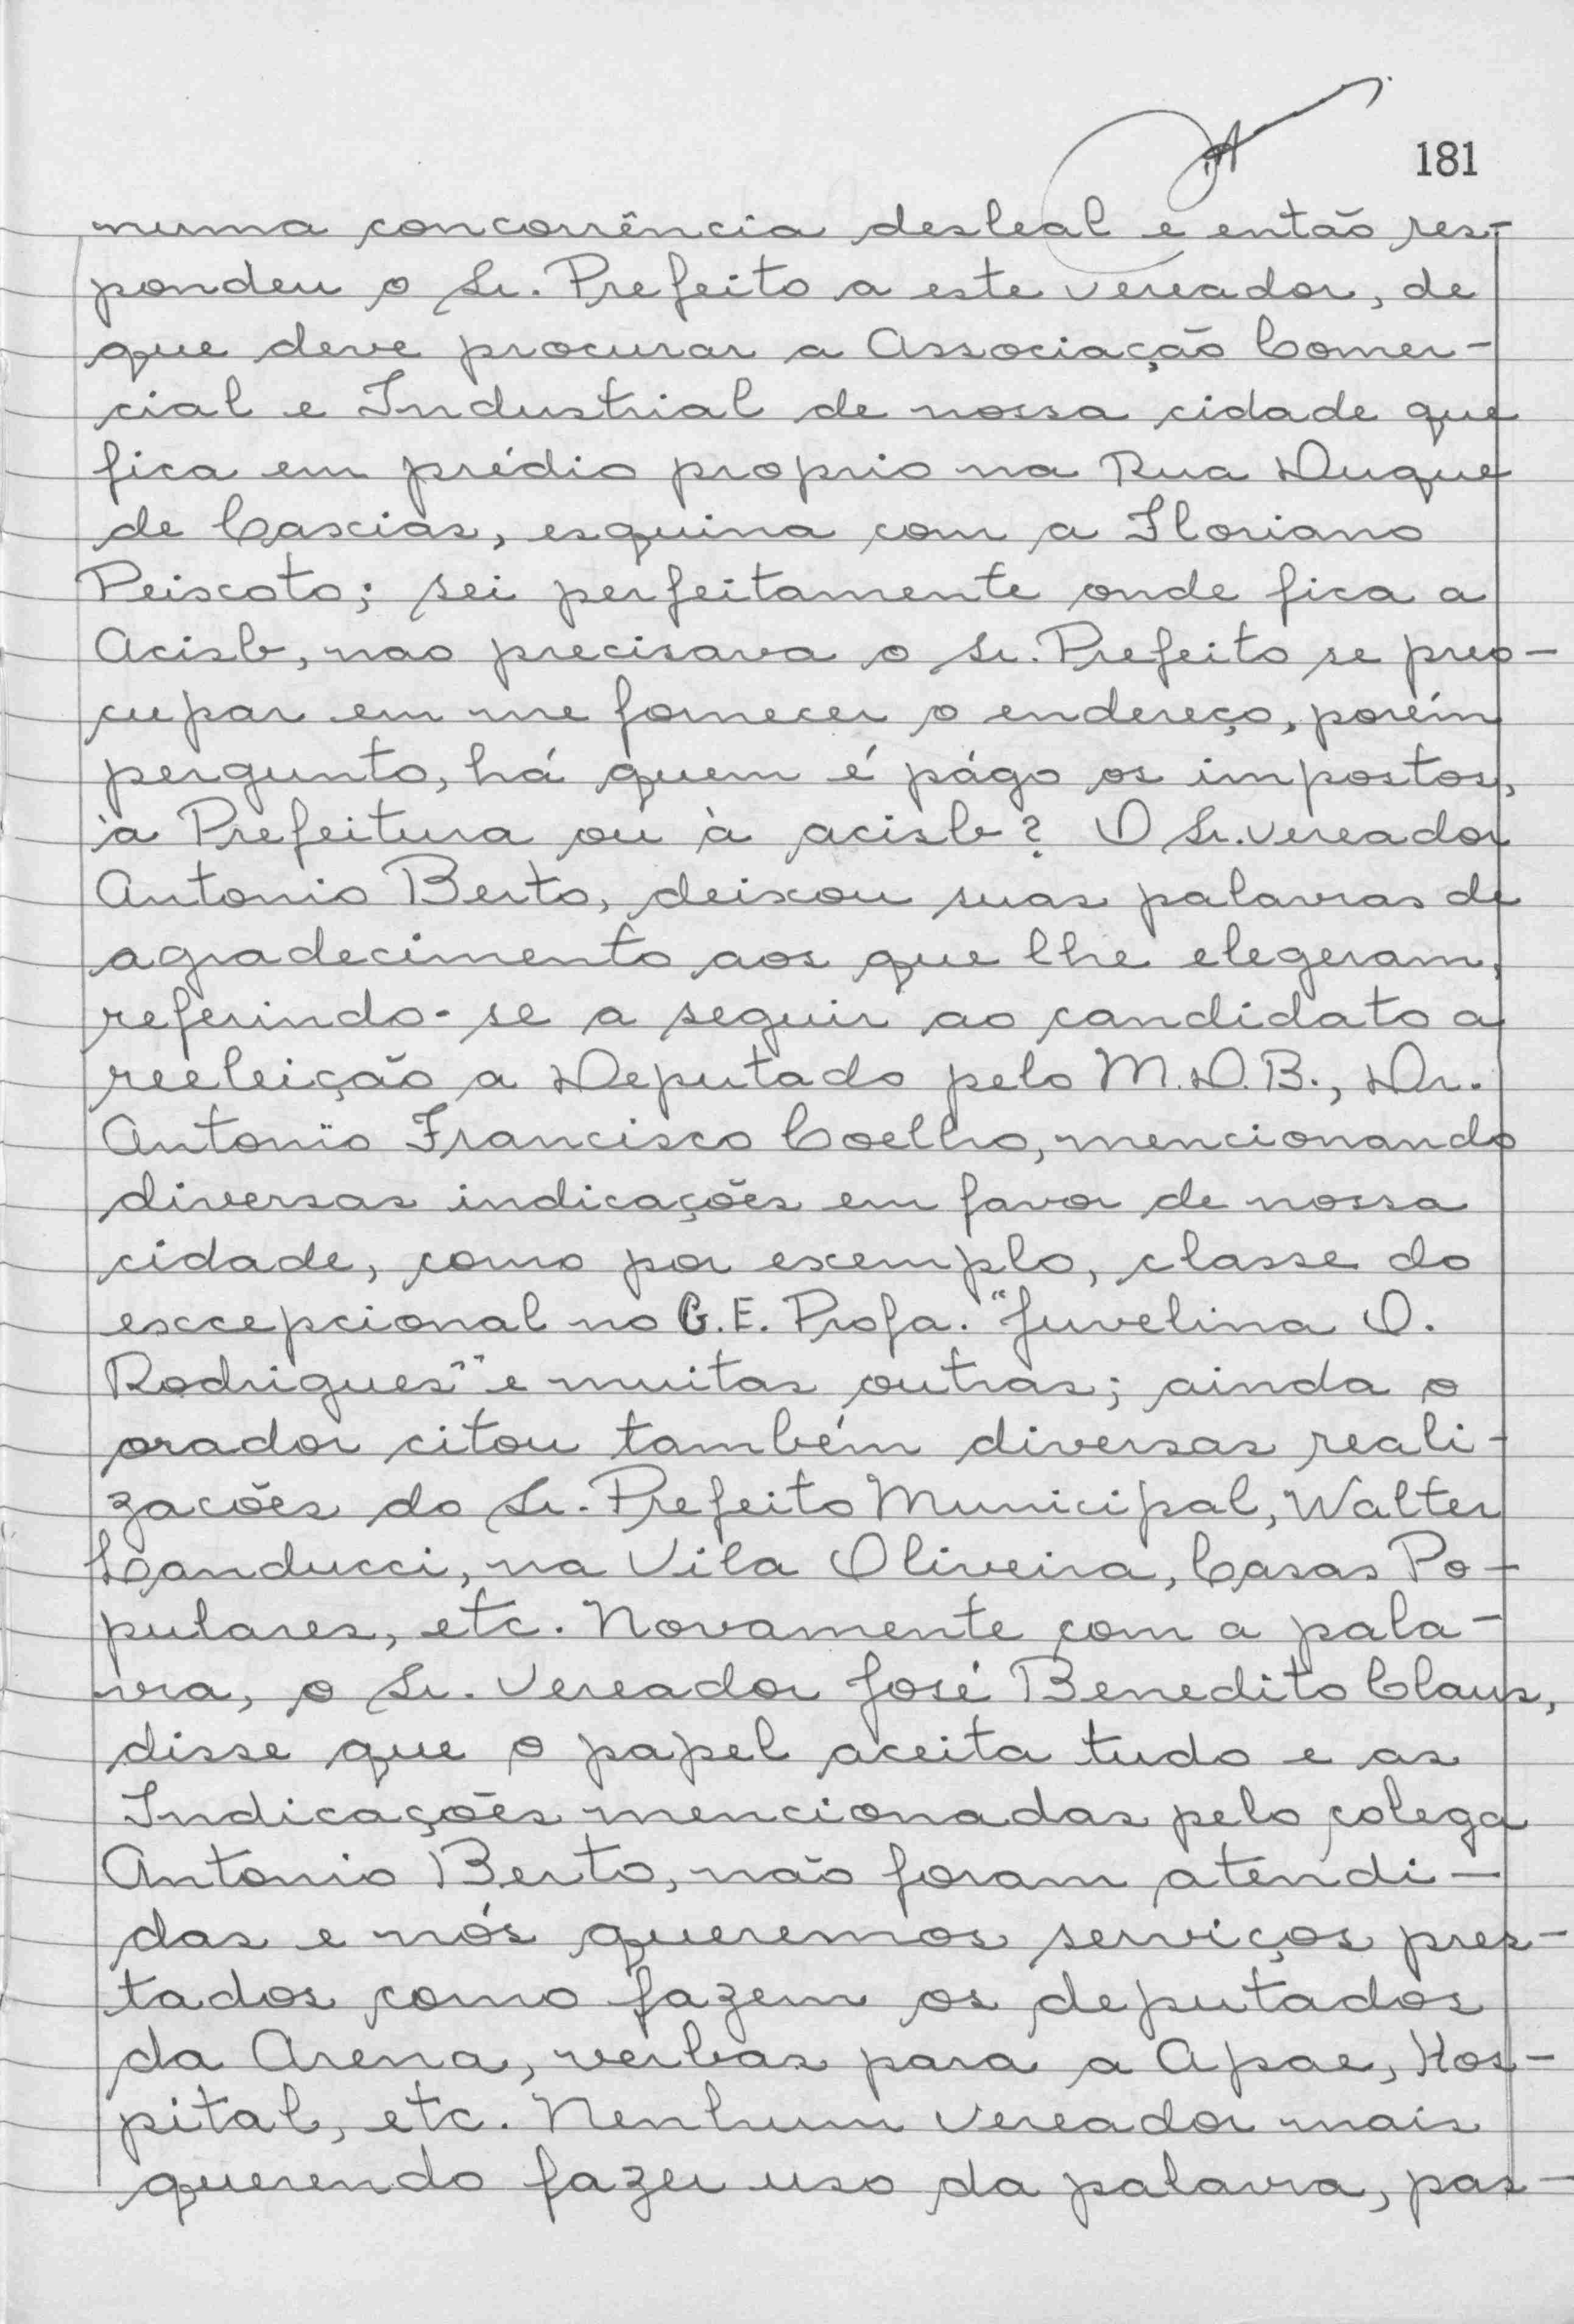 181
numa concorrência desleal e então res-
pondeu o Sr. Prefeito a este vereador, de
que deve procurar a Associação Comer-
cial e Industrial de nossa cidade que
fica em prédio proprio na Rua Duque
de Caxias, esquina com a Floriano
Peixoto; sei perfeitamente onde fica a
Acisb, nao precisava o Sr. Prefeito se preo-
cupar em me fornecer o endereço, porém
pergunto, há quem é págo os impostos,
à Prefeitura ou à acisb? O Sr. vereador
Antonio Berto, deixou suas palavras de
agradecimento aos que lhe elegeram,
referindo-se a seguir ao candidato a
reeleição a Deputado pelo M.D.B., Dr.
Antonio Francisco Coelho, mencionando
diversas indicações em favor de nossa
cidade, como por exemplo, classe do
excepcional no G.E. Profa. "Juvelina O.
Rodrigues" e muitas outras; ainda o
orador citou também diversas reali-
zacões do Sr. Prefeito Municipal, Walter
Landucci, na Vila Oliveira, Casas Po-
pulares, etc. Novamente com a pala-
vra, o Sr. Vereador José Benedito Claus,
disse que o papel aceita tudo e as
Indicações mencionadas pelo colega
Antonio Berto, não foram atendi-
das e nós queremos serviços pres-
tados como fazem os deputados
da Arena, verbas para a Apae, Hos-
pital, etc. Nenhum vereador mais
querendo fazer uso da palavra, pas-